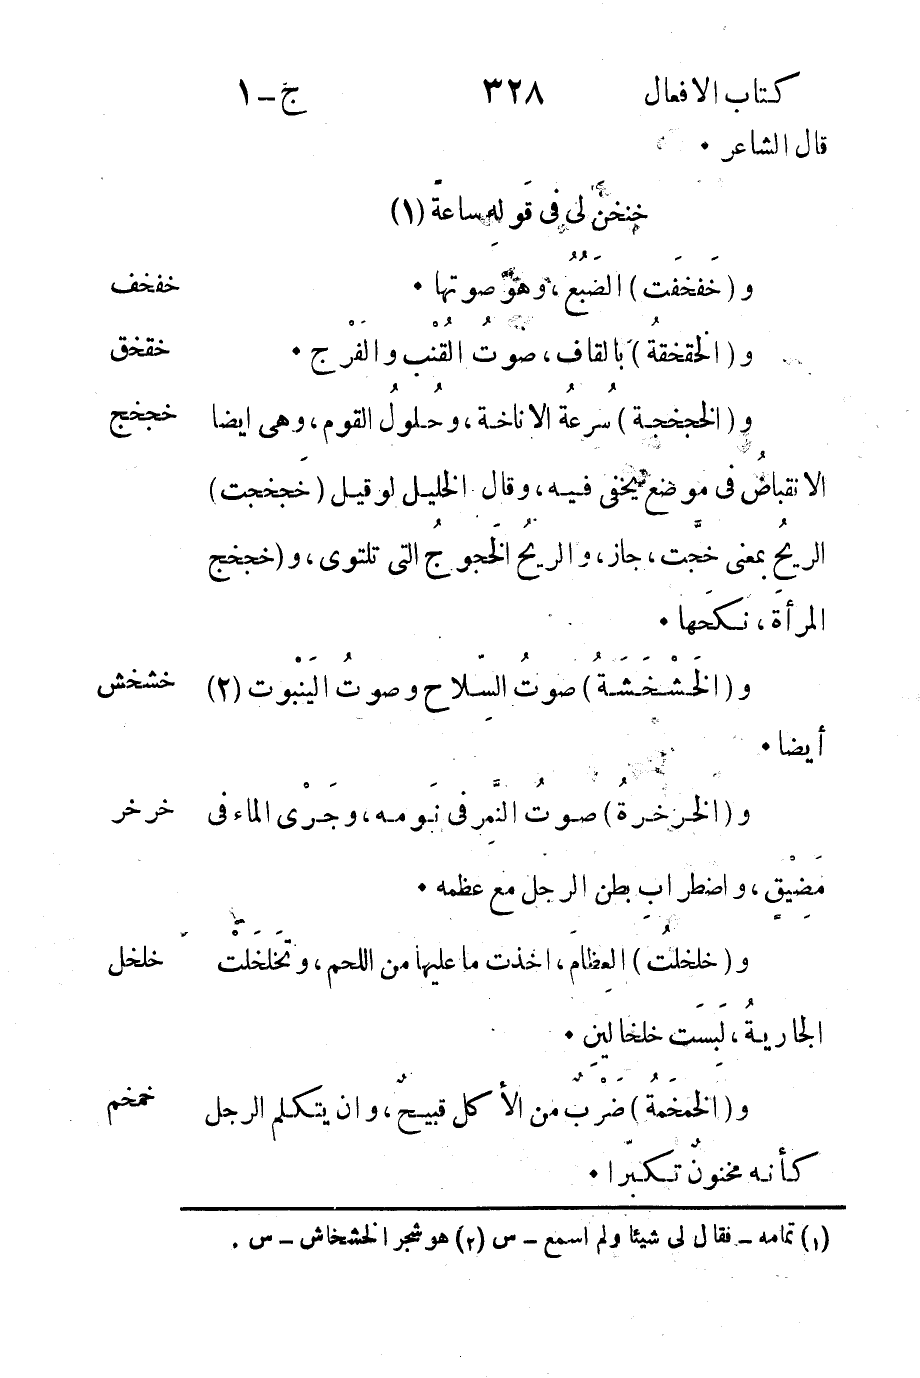 كتاب الافعال ٣٢٨ ج - ١
قال الشاعر •
خنخنَ لى فى قَولهِ ساعةً (١)
و (خَفخَفَت) الضَبُعُ، وهوَ صوتها • خفخف
و (الخقخقةُ) بالقاف، صوتُ القُنْبِ والفَرْج • خقخق
و (الخجخجة) سُرعةُ الاناخة، وحُلولُ القوم، وهى ايضا خجخج
الانقباضُ فى موضع يَخفى فيه، وقال الخليل لوقيل (خجخجت)
الريحُ بمعنى خجَّت، جاز، والريحُ الخَجوجُ التى تلتوى، و (خجخج
المرأةَ، نكَحَها •
و (الخَشْخَشَةُ) صوتُ السِّلاح وصوتُ اليَنْبوت (٢) خشخش
أيضا •
و (الخَرخرةُ) صوتُ النَّمِر فى نَومه، وجَرْى الماء فى خرخر
مَضِيْقٍ، واضطرابِ بطن الرجل مع عظمه •
و (خلخلتُ) العِظامَ، اخذت ما عليها من اللحم، وتَخَلخَلَتْ خلخل
الجاريةُ، لَبِسَت خلخالينِ •
و (الخَمْخَمةُ) ضَرْبٌ من الأكل قبيحٌ، وان يتكلم الرجل خمخم
كأنه مخنونٌ تكبّرا •
(١) تمامه - فقال لى شيئا ولم اسمع - س (٢) هو شجر الخشخاش - س .